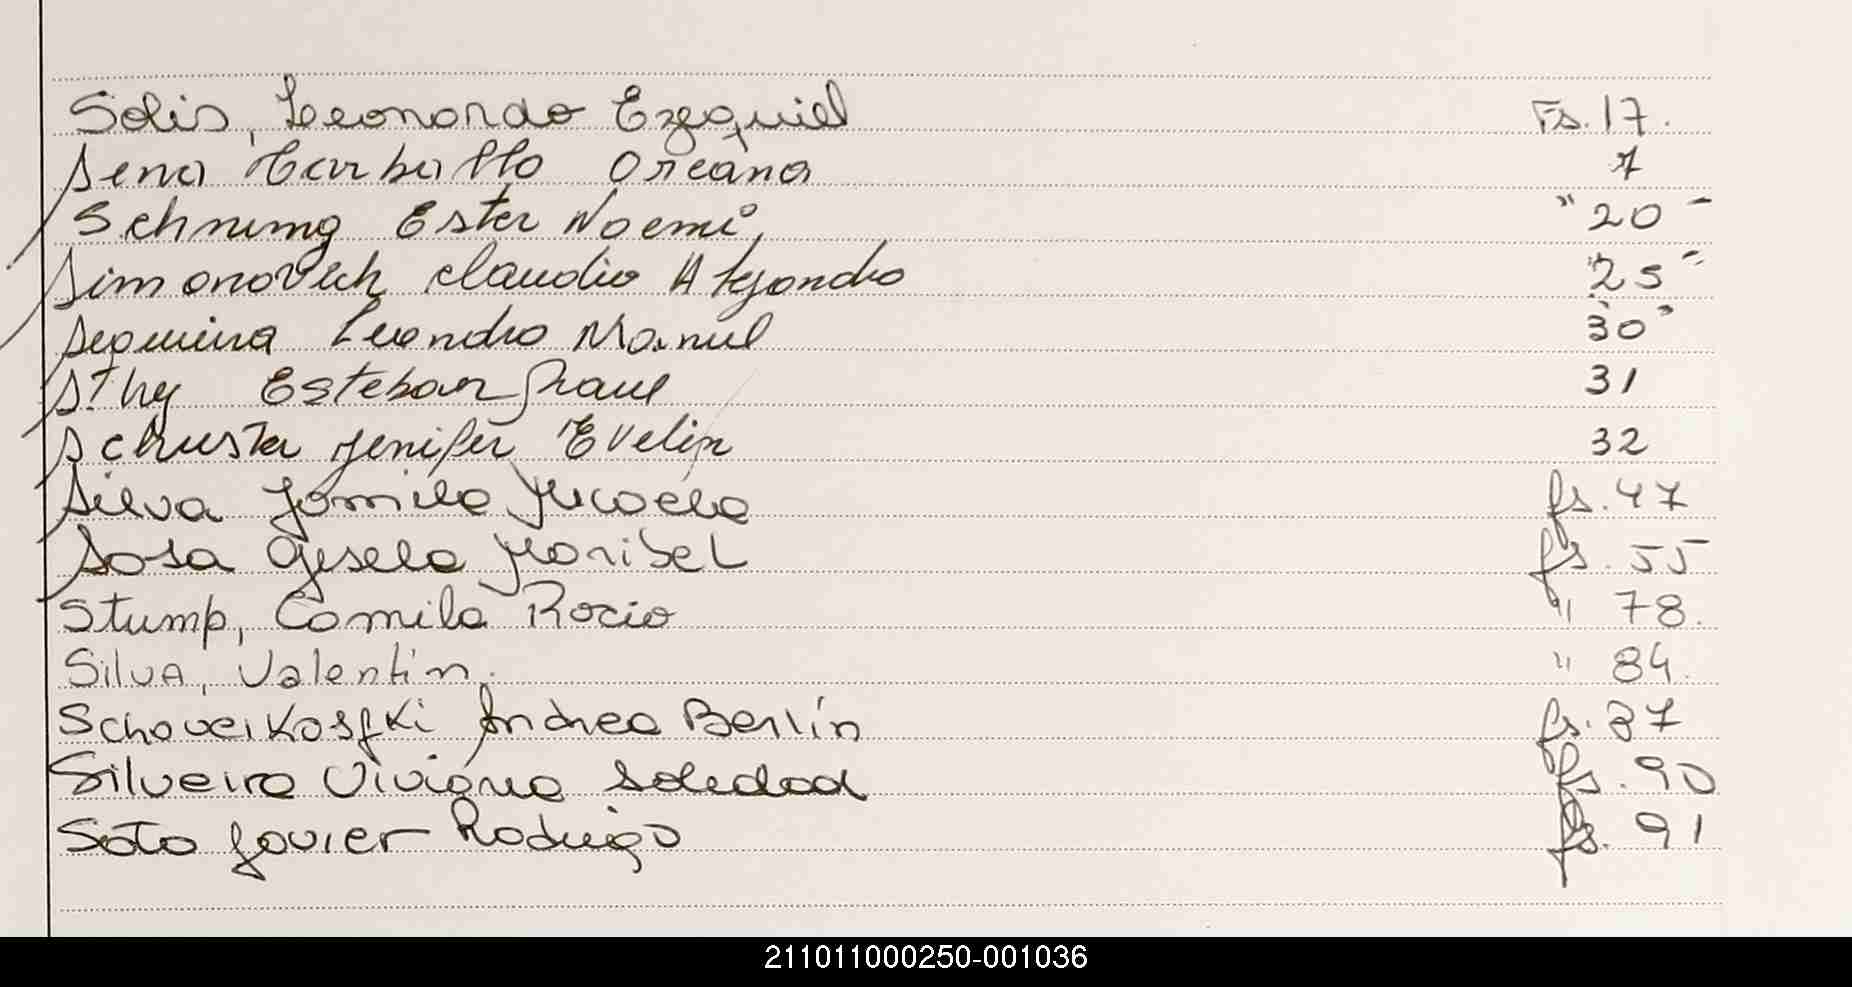 Solis, Leonardo Ezequiel Fs. 17.
Sena Carballo Oreana 7
Schnimg Ester Noemi, " 20 -
Simonovich claudio Alejandro 25 "
Sequeira Leandro Manuel 30 "
Sthy Esteban Raul 31
Schuster Jenifer Evelin 32
Silva Jamila Micaela fs. 47
Sosa Gisela Maribel fs. 55
Stump, Camila Rocio " 78.
Silva, Valentin. " 84.
Schoveikosfki Andrea Berlín fs. 87
Silveira Viviana Soledad fs. 90
Soto Javier Rodrigo fs. 91
211011000250-001036